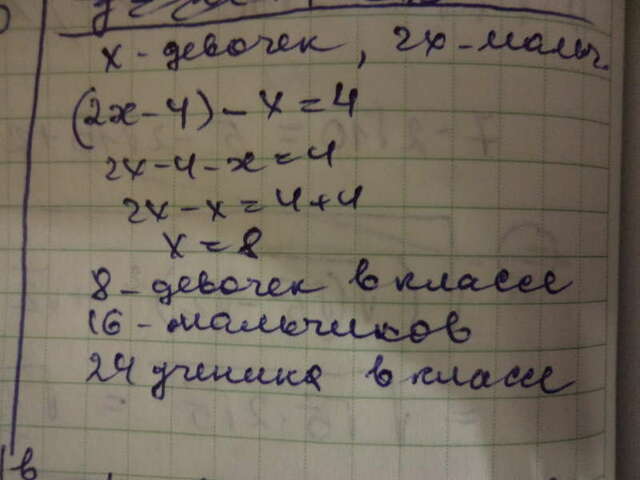 x - девочек, 2x - мальч.
(2x-4)-x=4
2x-4-x=4
2x-x=4+4
x=8
8 - девочек в классе
16 - мальчиков
24 ученика в классе
в